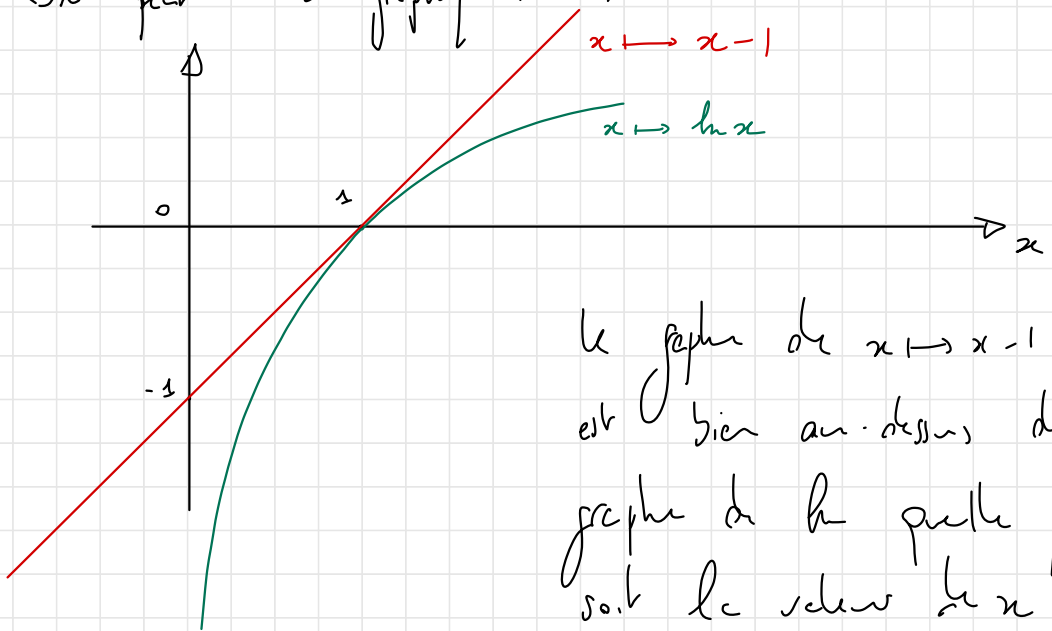 x ↦ x - 1
x ↦ ln x
0
1
x
-1
le graphe de x ↦ x - 1
est bien au-dessus
graphe de ln quelle
soit la valeur de x